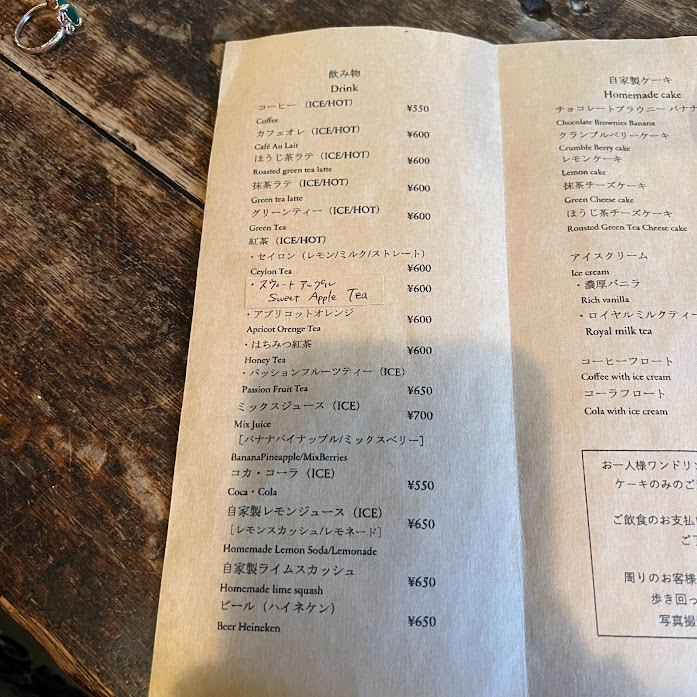 飲み物
Drink
コーヒー（ICE/HOT）
¥550
Coffee
カフェオレ（ICE/HOT）
¥600
Café Au Lait
ほうじ茶ラテ（ICE/HOT）
¥600
Roasted green tea latte
抹茶ラテ（ICE/HOT）
¥600
Green tea latte
グリーンティー（ICE/HOT）
¥600
Green Tea
紅茶（ICE/HOT）
・セイロン（レモン/ミルク/ストレート）
¥600
Ceylon Tea
・スウィートアップル
¥600
Sweet Apple Tea
・アプリコットオレンジ
¥600
Apricot Orenge Tea
・はちみつ紅茶
¥600
Honey Tea
・パッションフルーツティー（ICE）
¥650
Passion Fruit Tea
ミックスジュース（ICE）
¥700
Mix Juice
［バナナパイナップル/ミックスベリー］
BananaPineapple/MixBerries
コカ・コーラ（ICE）
¥550
Coca・Cola
自家製レモンジュース（ICE）
¥650
［レモンスカッシュ/レモネード］
Homemade Lemon Soda/Lemonade
自家製ライムスカッシュ
¥650
Homemade lime squash
ビール（ハイネケン）
¥650
Beer Heineken
自家製ケーキ
Homemade cake
チョコレートブラウニー バナナ
Chocolate Brownies Banana
クランブルベリーケーキ
Crumble Berry cake
レモンケーキ
Lemon cake
抹茶チーズケーキ
Green Cheese cake
ほうじ茶チーズケーキ
Rousted Green Tea Cheese cake
アイスクリーム
Ice cream
・濃厚バニラ
Rich vanilla
・ロイヤルミルクティー
Royal milk tea
コーヒーフロート
Coffee with ice cream
コーラフロート
Cola with ice cream
お一人様ワンドリン
ケーキのみのご
ご飲食のお支払
ご
周りのお客様
歩き回っ
写真撮